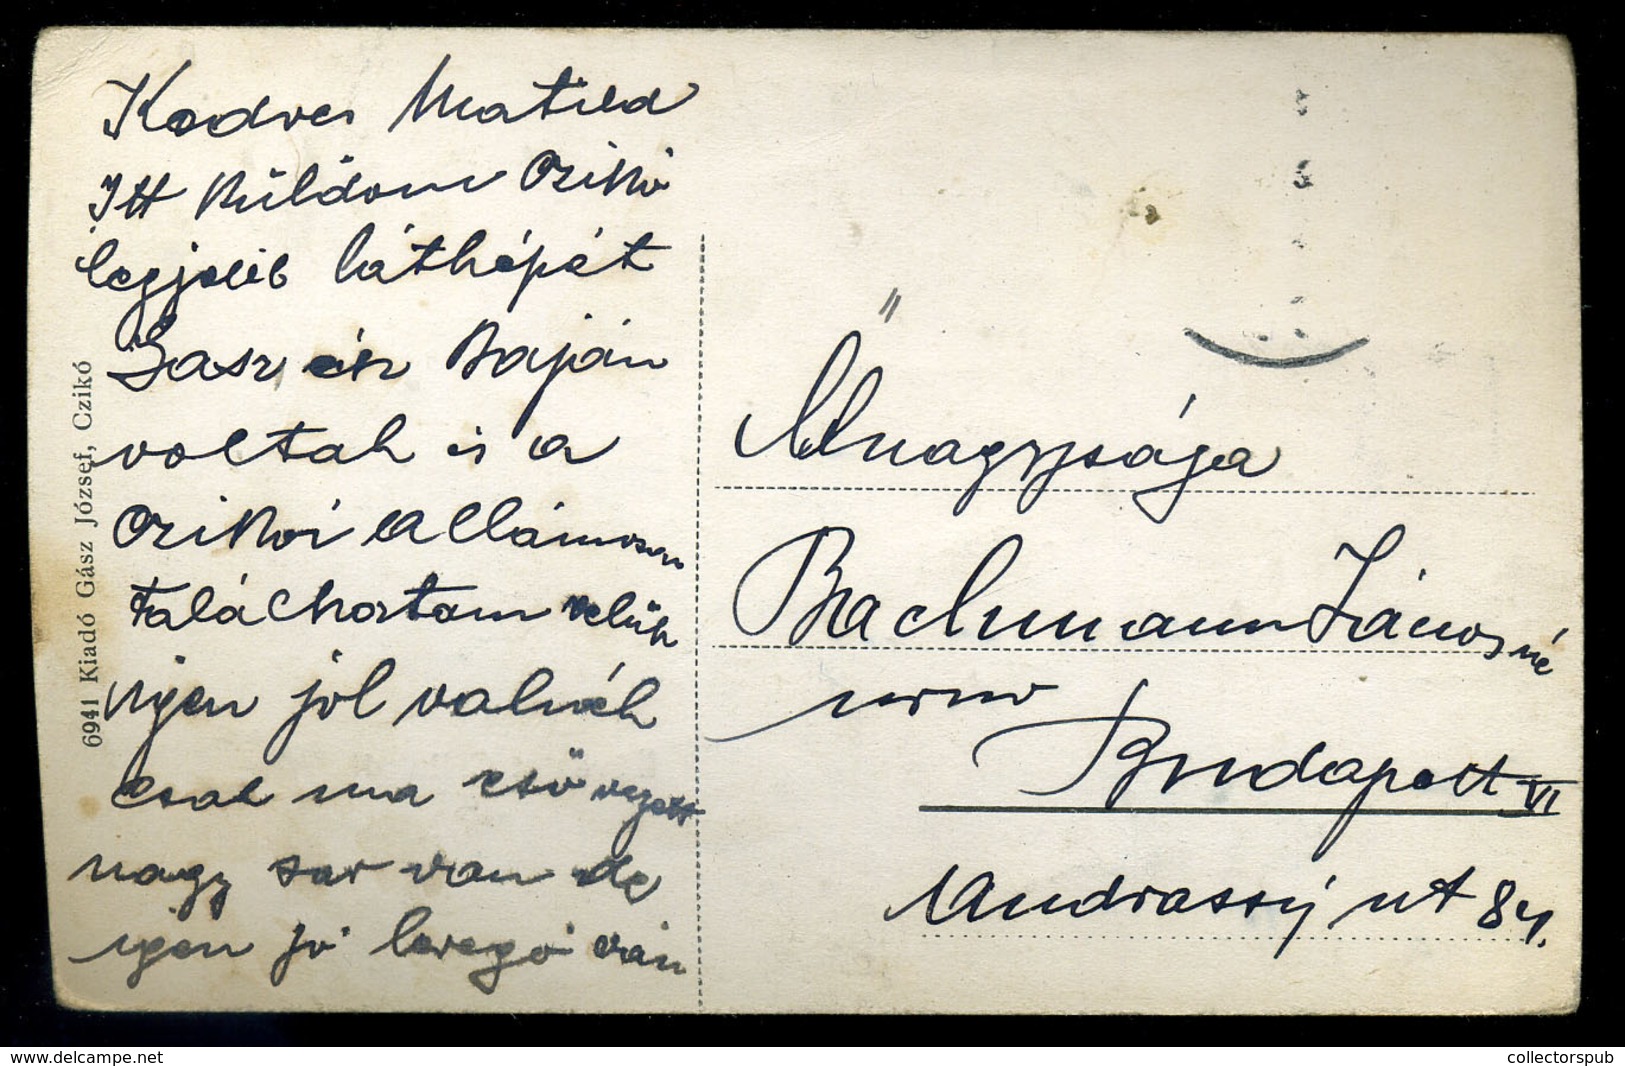 Kedves Matild
Itt küldom Czikó
legjobb láthépét
és Baján
voltak is a
Czikói állámoson
taláchoztam velük
igen jol valnák
csak ma eső vegett
nagy sar van de
igen jó levegö ván
6941 Kiadó Gász József, Czikó
Őnagysága
Bachmann Jánosné
urnő
Budapest VI
Andrassy ut 84.
delcampe.net
collectorspub